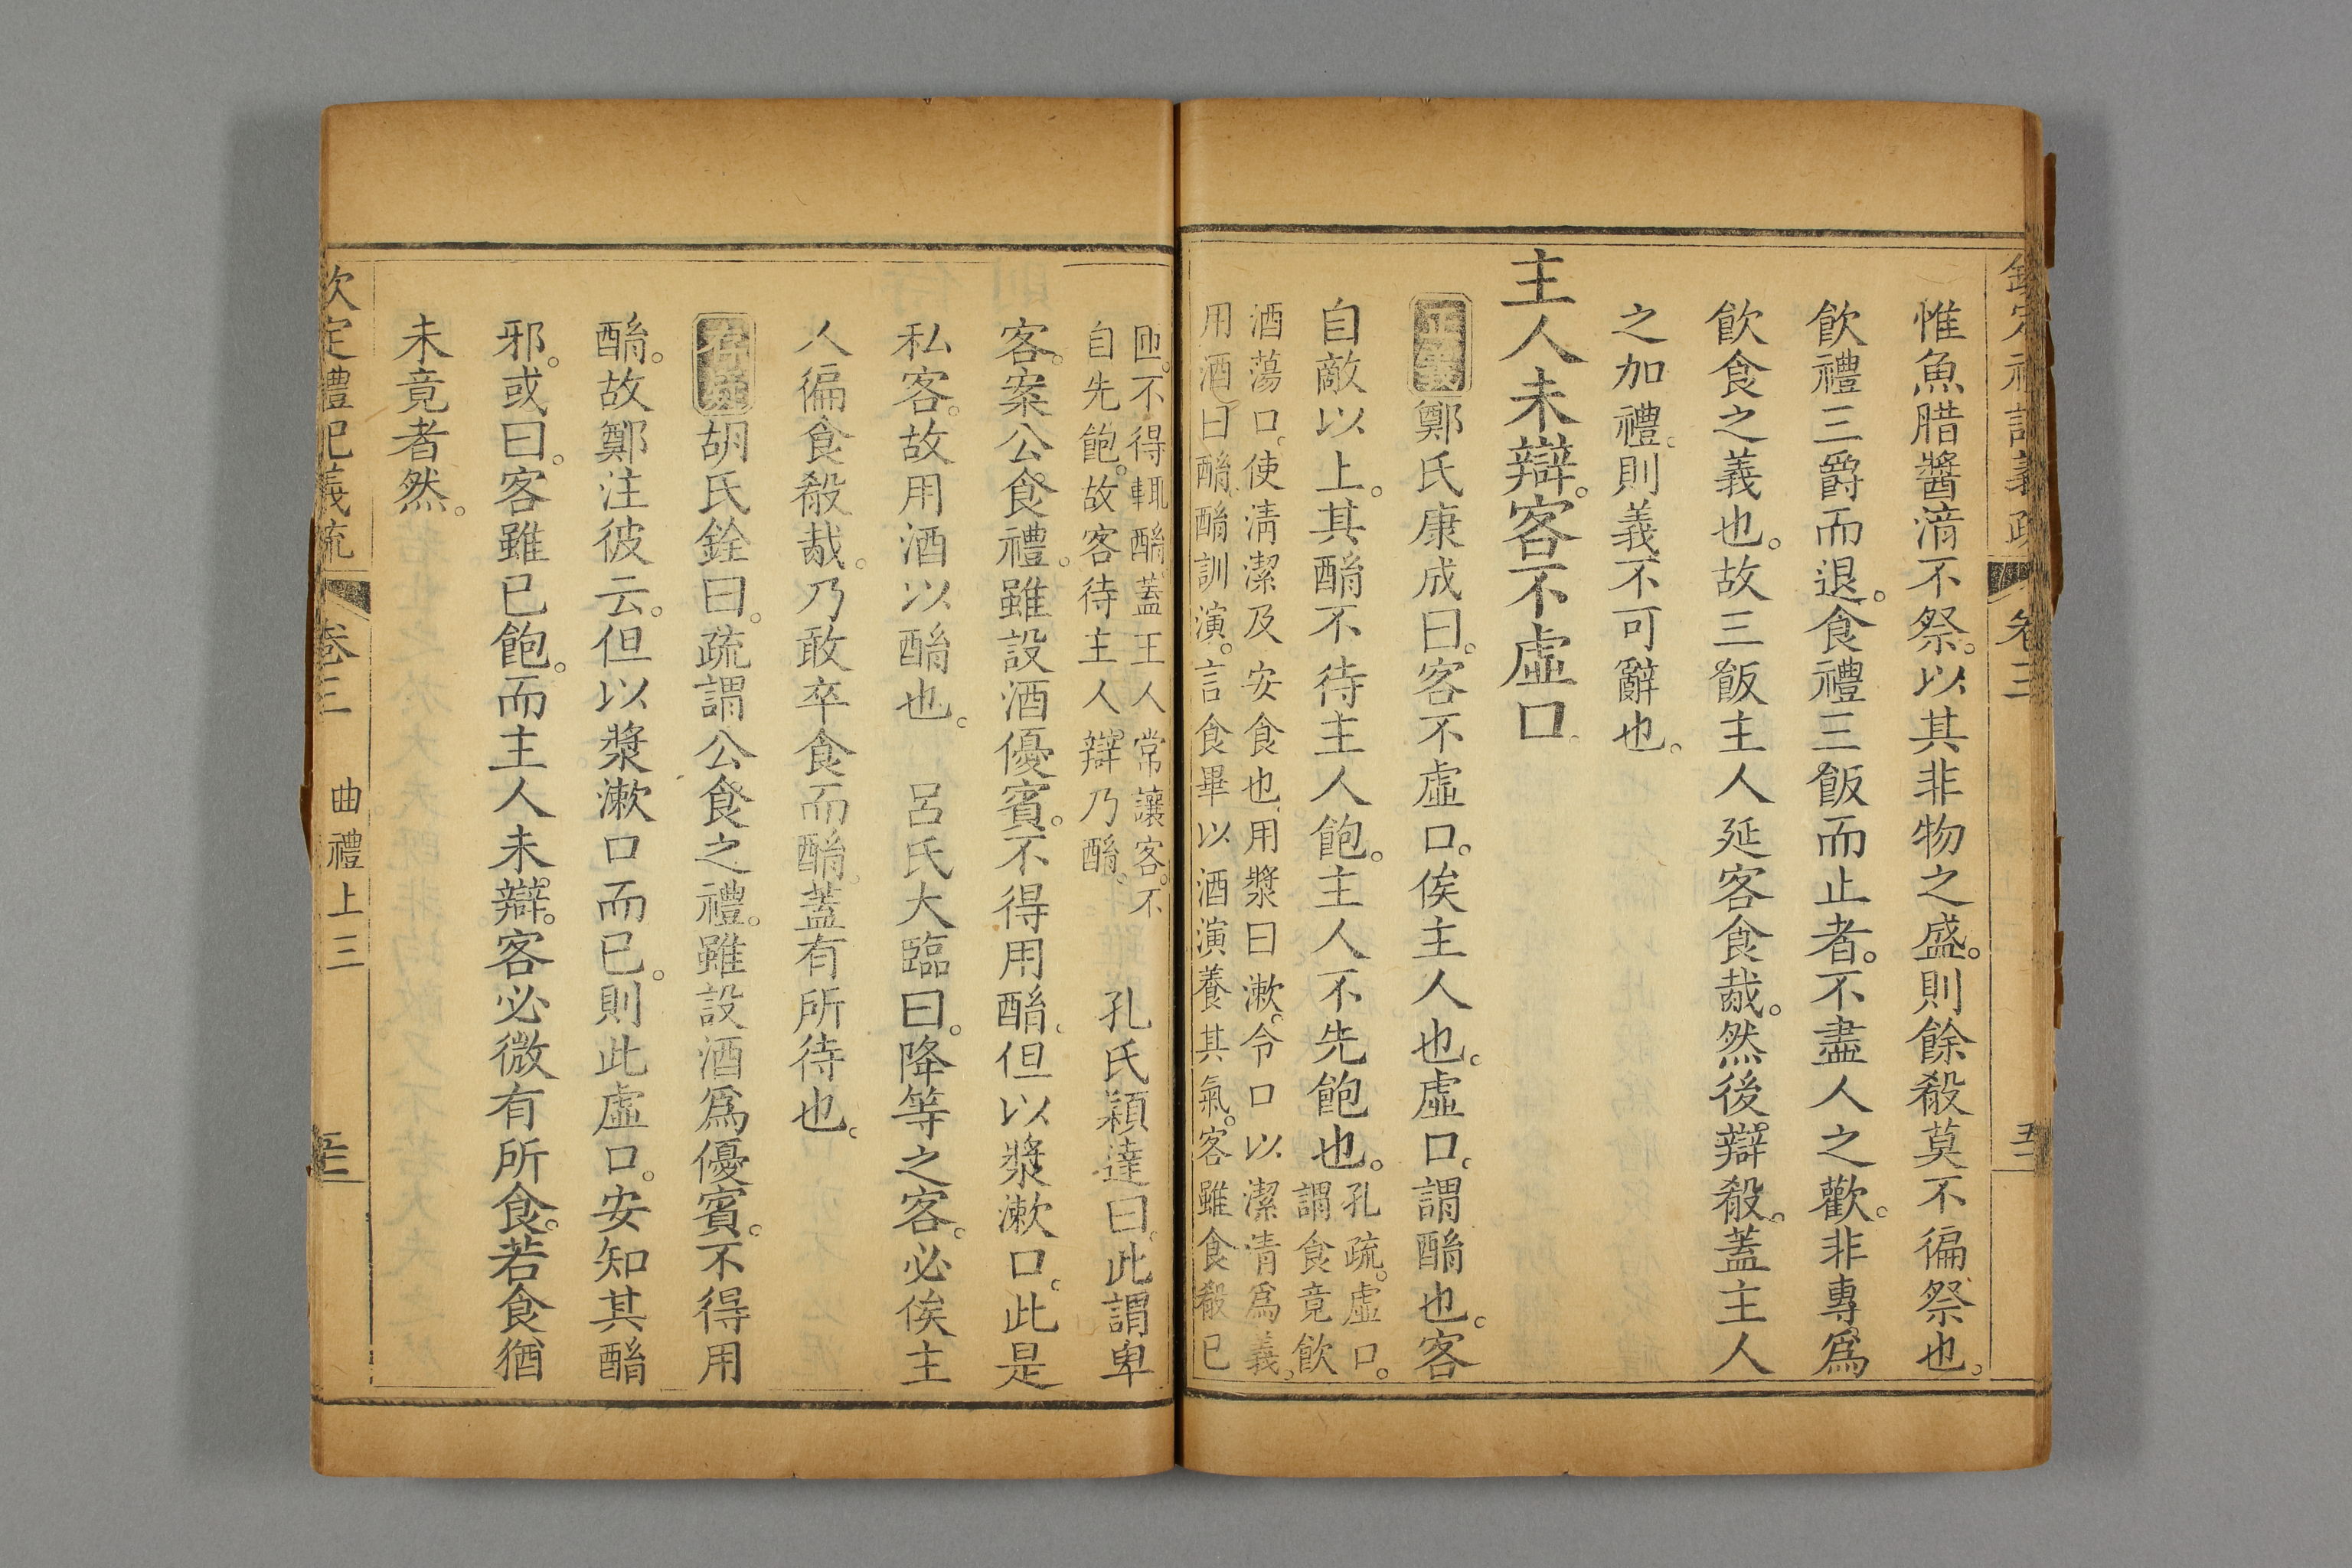 欽定禮記義疏 卷三
惟魚腊醬湆不祭。以其非物之盛。則餘殽莫不徧祭也。
飲禮三爵而退。食禮三飯而止者。不盡人之歡。非專爲
飲食之義也。故三飯主人延客食胾。然後辯殽。蓋主人
之加禮。則義不可辭也。
主人未辯。客不虛口。
正義 鄭氏康成曰。客不虛口。俟主人也。虛口。謂酳也。客
自敵以上。其酳不待主人飽。主人不先飽也。
孔疏。虛口。
謂食竟飲
酒蕩口。使淸潔及安食也。用漿曰漱。令口以潔淸爲義。
用酒曰酳。酳訓演。言食畢以酒演養其氣。客雖食殽已
匝。不得輒酳。蓋王人常讓客。不
自先飽。故客待主人辯乃酳。
孔氏穎達曰。此謂卑
客。案公食禮。雖設酒優賓。不得用酳。但以漿漱口。此是
私客。故用酒以酳也。 呂氏大臨曰。降等之客。必俟主
人徧食殽胾。乃敢卒食而酳。蓋有所待也。
存疑 胡氏銓曰。疏謂公食之禮。雖設酒爲優賓。不得用
酳。故鄭注彼云。但以漿漱口而已。則此虛口。安知其酳
邪。或曰。客雖已飽。而主人未辯。客必微有所食。若食猶
未竟者然。
欽定禮記義疏 卷三 曲禮上三